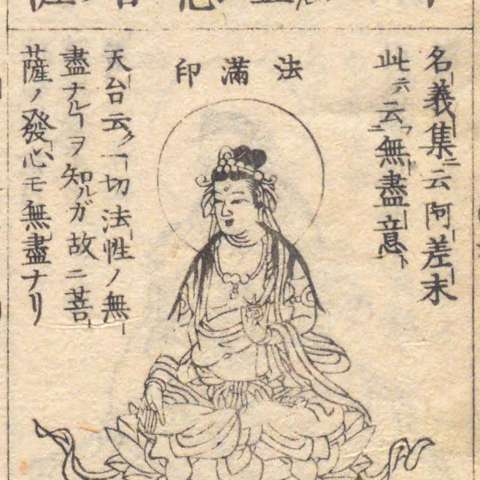 名義集ニ云阿差末
此ニハ云フ無盡意ト
法滿印
天台云ク一切法性ノ無
盡ナルヲ知ルガ故ニ菩
薩ノ發心モ無盡ナリ